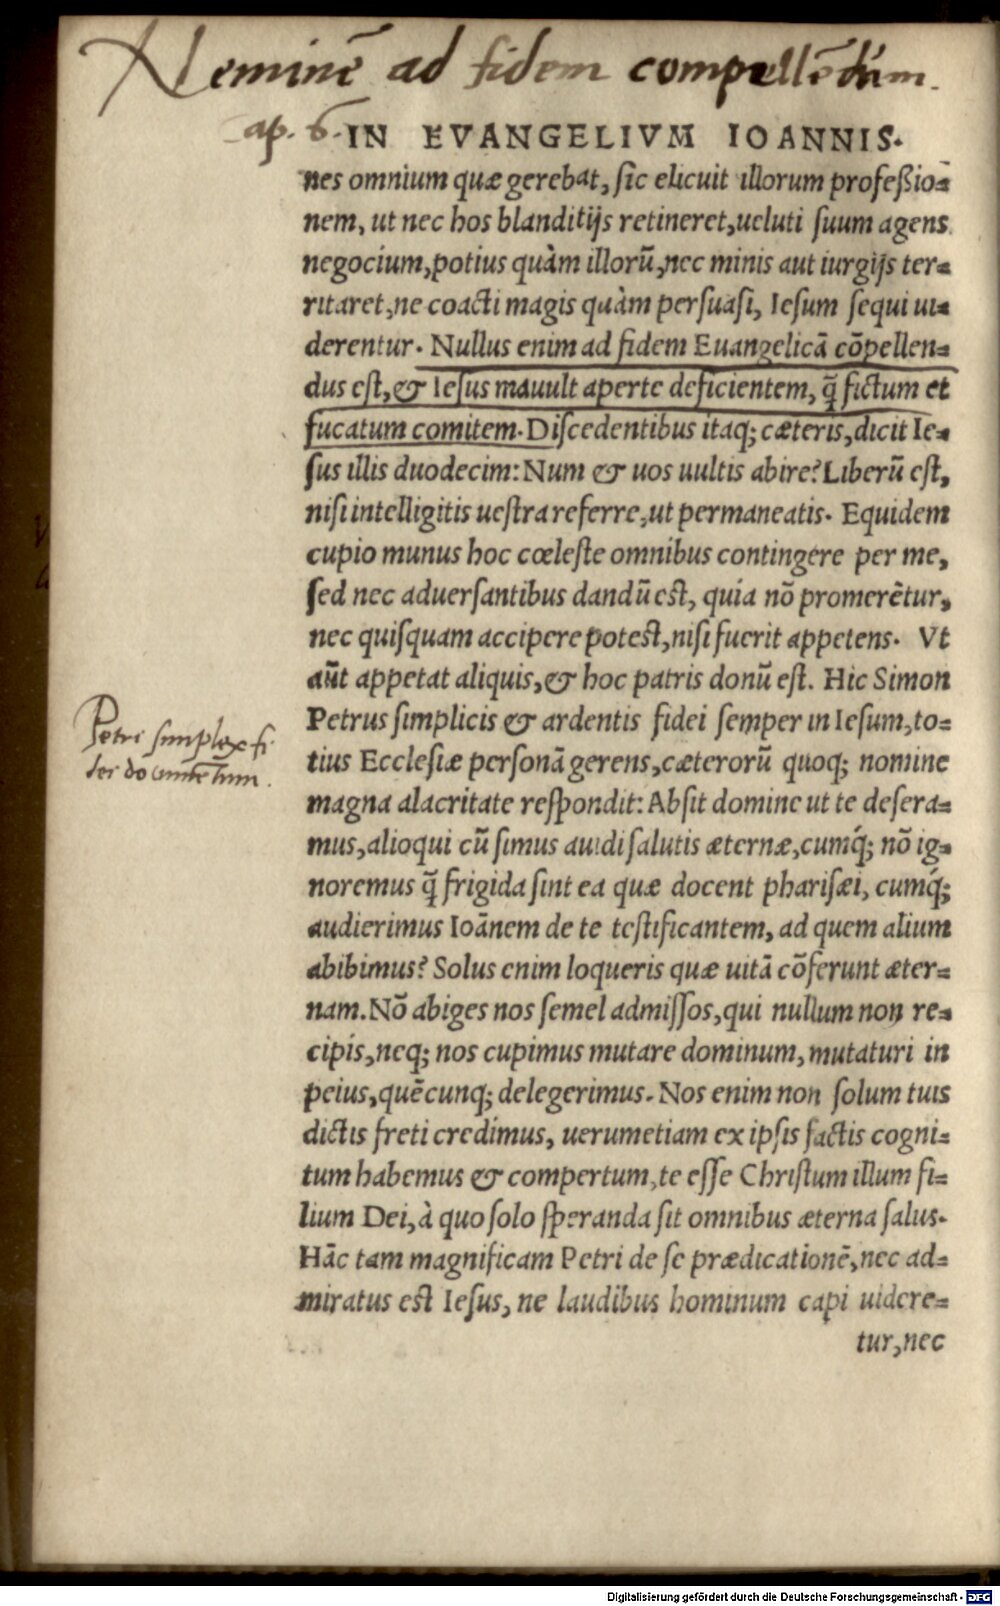 Neminē ad fidem compellēdum.
ap. 6. IN EVANGELIVM IOANNIS.
nes omnium quæ gerebat, sic elicuit illorum profeßio=
nem, ut nec hos blanditijs retineret, ueluti suum agens
negocium, potius quàm illorũ, nec minis aut iurgijs ter=
ritaret, ne coacti magis quàm persuasi, Iesum sequi ui=
derentur. Nullus enim ad fidem Euangelicã cõpellen=
dus est, & Iesus mauult aperte deficientem, q̃ fictum et
fucatum comitem. Discedentibus itaq; cæteris, dicit Ie=
sus illis duodecim: Num & uos uultis abire? Liberũ est,
nisi intelligitis uestra referre, ut permaneatis. Equidem
cupio munus hoc cœleste omnibus contingere per me,
sed nec aduersantibus dandũ est, quia nõ promerẽtur,
nec quisquam accipere potest, nisi fuerit appetens. Vt
aũt appetat aliquis, & hoc patris donũ est. Hic Simon
Petrus simplicis & ardentis fidei semper in Iesum, to=
tius Ecclesiæ personã gerens, cæterorũ quoq; nomine
magna alacritate respondit: Absit domine ut te desera=
mus, alioqui cũ simus auidi salutis æternæ, cumq́; nõ ig=
noremus q̃ frigida sint ea quæ docent pharisæi, cumq́;
audierimus Ioãnem de te testificantem, ad quem alium
abibimus? Solus enim loqueris quæ uitã cõferunt æter=
nam. Nõ abiges nos semel admissos, qui nullum non re=
cipis, neq; nos cupimus mutare dominum, mutaturi in
peius, quẽcunq; delegerimus. Nos enim non solum tuis
dictis freti credimus, uerumetiam ex ipsis factis cogni=
tum habemus & compertum, te esse Christum illum fi=
lium Dei, à quo solo speranda sit omnibus æterna salus.
Hãc tam magnificam Petri de se prædicationẽ, nec ad=
miratus est Iesus, ne laudibus hominum capi uidere=
tur, nec
Petri simplex fi
dei documētum.
Digitalisierung gefördert durch die Deutsche Forschungsgemeinschaft - DFG